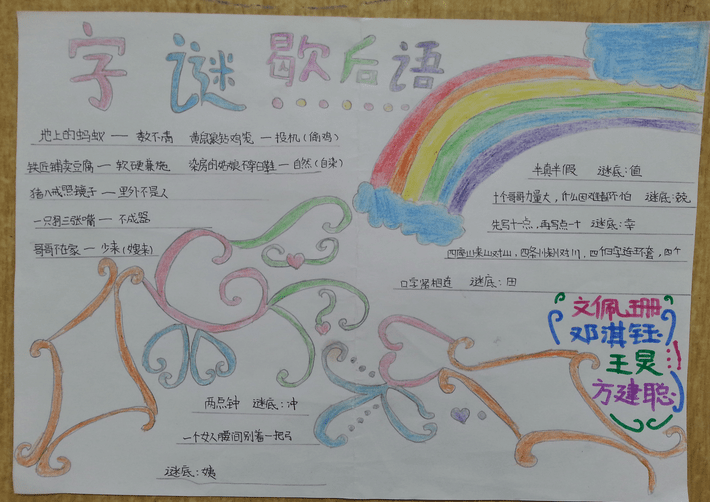 字谜歇后语
地上的蚂蚁 — 数不清
黄鼠狼钻鸡笼 — 投机（偷鸡）
铁匠铺卖豆腐 — 软硬兼施
染房的姑娘不穿白鞋 — 自然（自染）
猪八戒照镜子 — 里外不是人
一只 三张嘴 — 不成器
哥哥不在家 — 少来（嫂来）
半真半假 谜底：值
十个哥哥力量大，什么困难都不怕 谜底：克
先写十一点，再写点一十 谜底：幸
四座山山对山，四条川川对川，四个日字连环套，四个
口字紧相连 谜底：田
两点钟 谜底：冲
一个女人腰间别着一把弓
谜底：姨
文佩珊
邓淇钰
王昊
方建聪